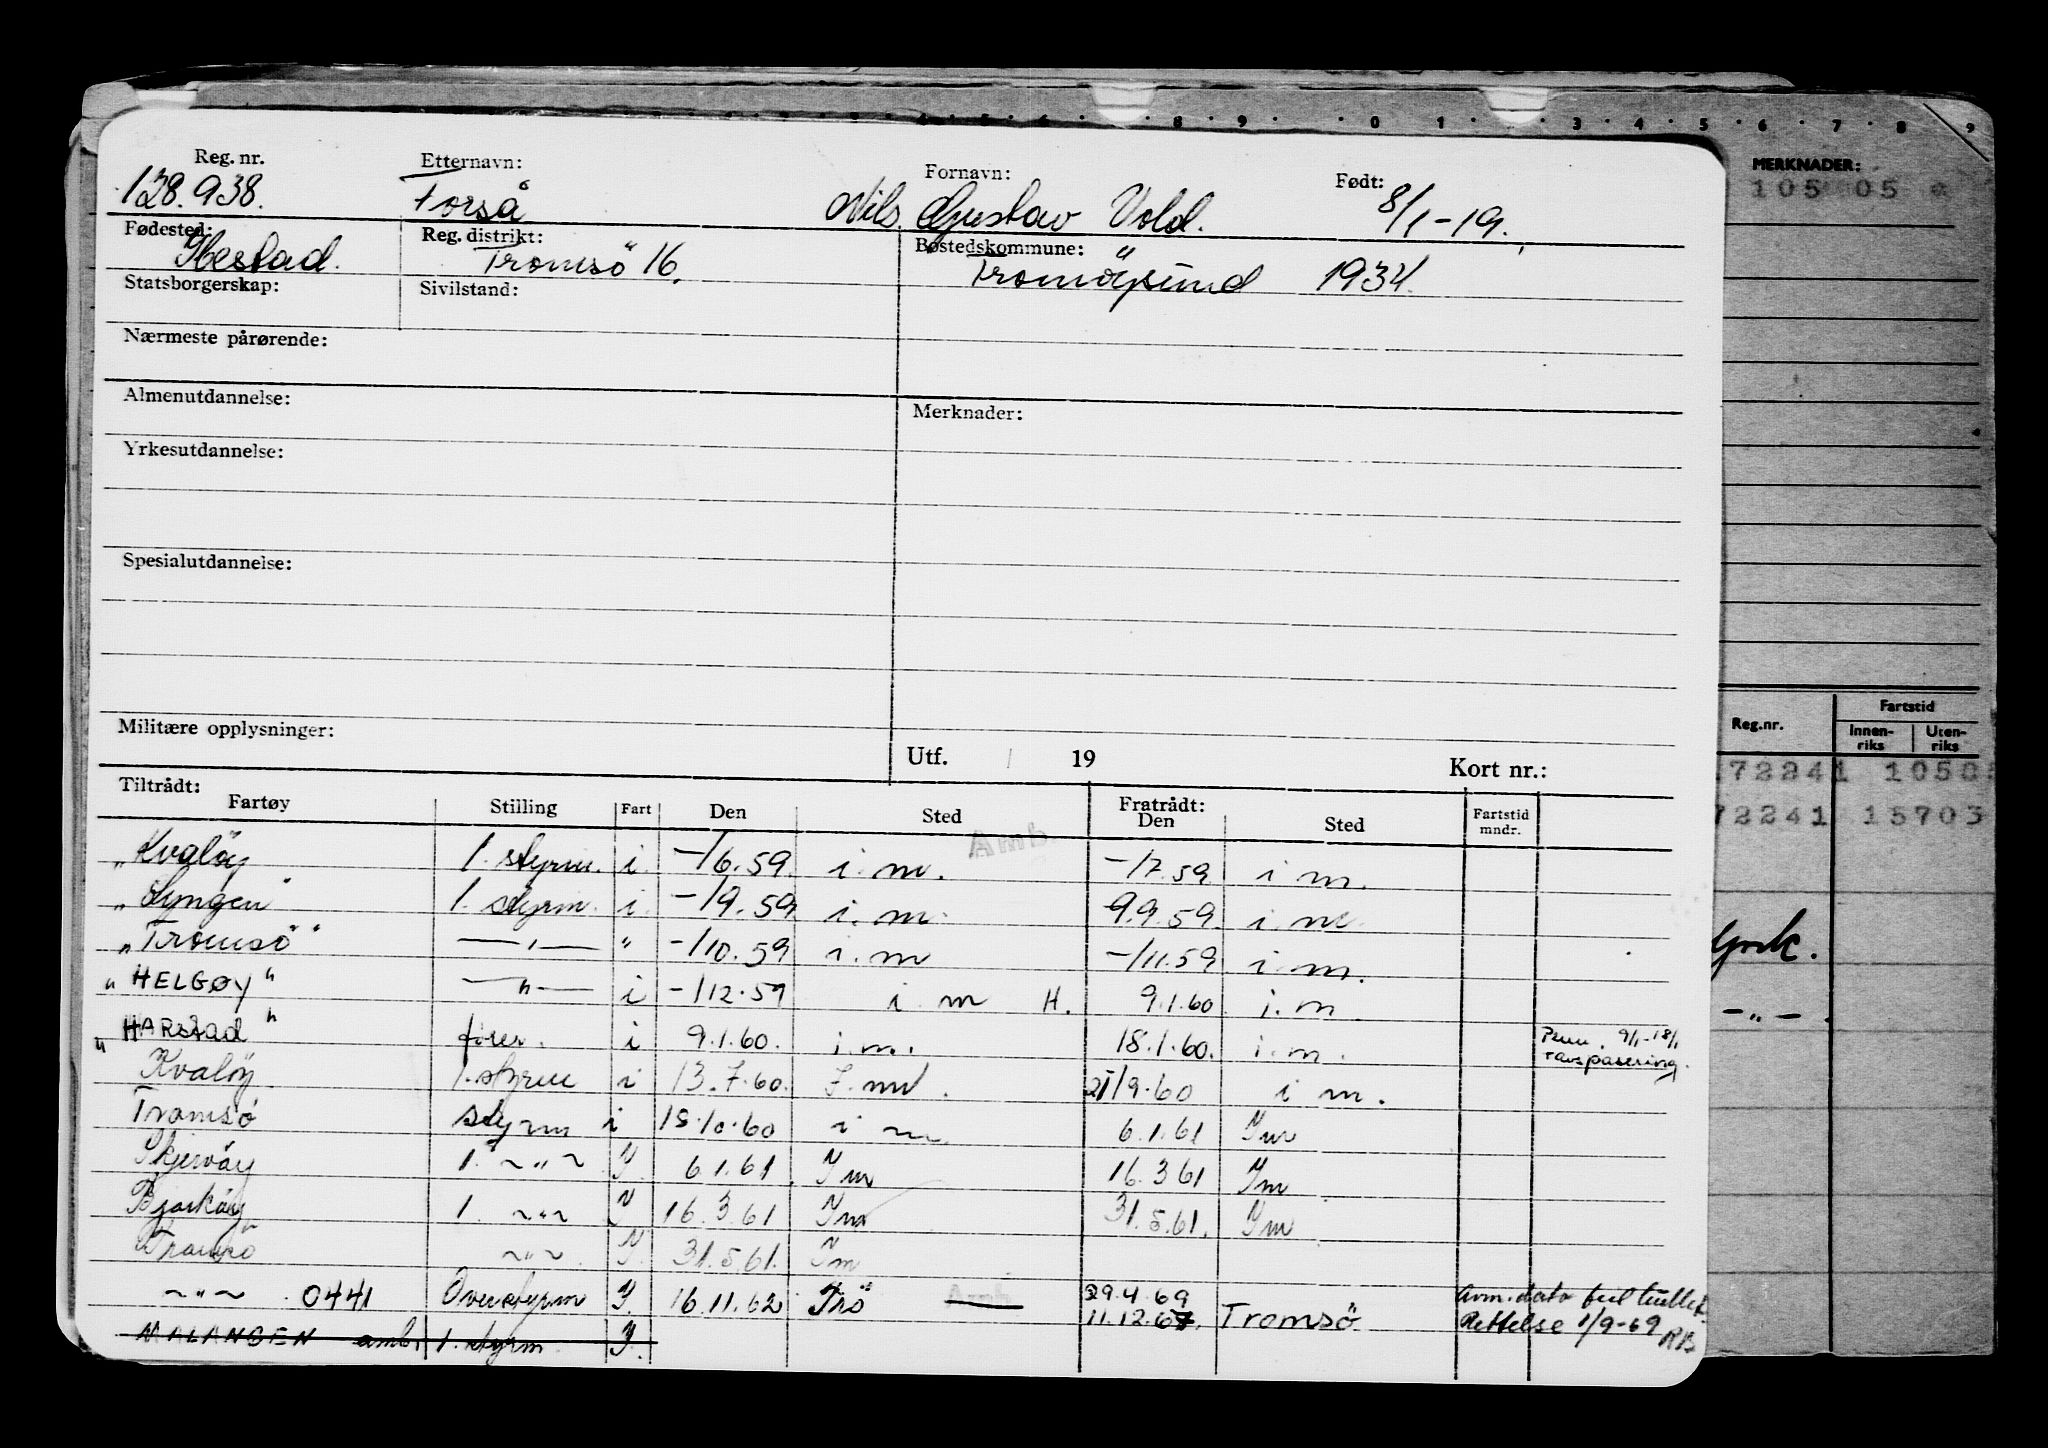 4 5 6 8 9 0 1 3 4 5 6 7 8 9
MERKNADER:
105 05 *
Reg. nr. Etternavn: Fornavn: Født:
128.938. Forså Nils Gustav Vold. 8/1-19.
Fødested: Reg. distrikt: Bostedskommune:
Ibestad. Tromsö 16. Tromöysund 1934.
Statsborgerskap: Sivilstand:
Nærmeste pårørende:
Almenutdannelse: Merknader:
Yrkesutdannelse:
Spesialutdannelse:
Militære opplysninger:
Utf. / 19 Kort nr.:
Tiltrådt: Fratrådt:
Fartøy Stilling Fart Den Sted Den Sted Fartstid mndr.
Amb.
"Kvalöy 1. styrm. i. -/6.59. i. m. -/7.59 i m.
"Lyngen" 1. styrm. i. -/9.59 i. m. 9.9.59. i. m.
"Tromsö" —"— " -/10.59 i. m -/11.59 i. m.
"HELGØY" —"— i -/12.59 i m H. 9.1.60 i. m
"HARstad" fører. i 9.1.60. i.m. 18.1.60. i. m. 9/1-18/1
avspasering.
Kvalöy 1. styrm i 13.7.60. I. m 21/9.60 i m.
Tromsö styrm i 15.10.60 i m 6.1.61 Im
Skjervöy 1. ~"~ I. 6.1.61. Im 16.3 61 Im
Bjarköy 1. ~"~ I 16.3.61 Im 31.5.61. Im
Tromsö ~"~ I. 31.5.61. Im
~"~ 0441 Overstyrm I. 16.11.62 Trö — 29.4.69
11.12.67. Tromsö Avm. dato
Rettelse 1/9-69 RB
MALANGEN amb. 1. styrm I.
Reg.nr. Fartstid
Innen-riks Uten-riks
72241 1050
72241 15703
-"-.